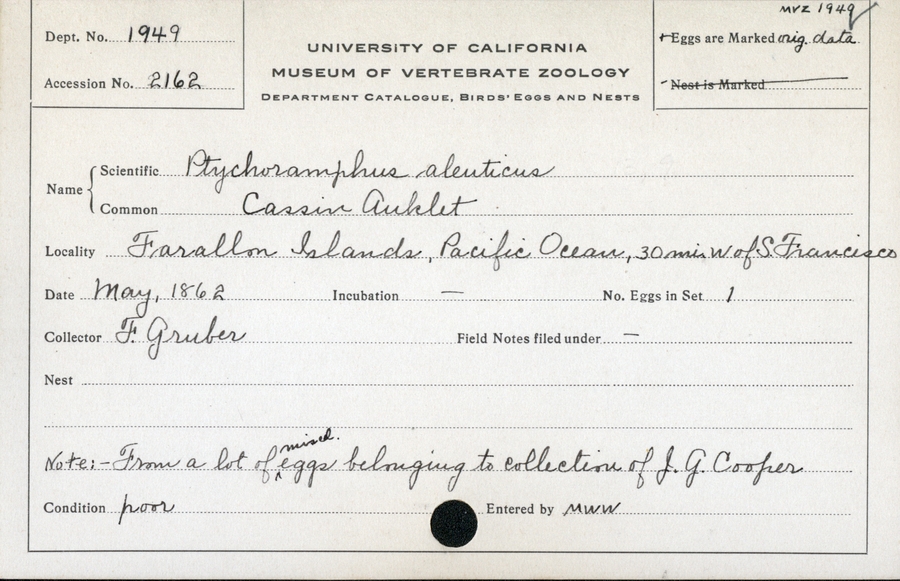 MVZ 1949
Dept. No. 1949
Accession No. 2162
UNIVERSITY OF CALIFORNIA
MUSEUM OF VERTEBRATE ZOOLOGY
DEPARTMENT CATALOGUE, BIRDS' EGGS AND NESTS
+ Eggs are Marked orig. data
- Nest is Marked
Name
Scientific Ptychoramphus aleuticus
Common Cassin Auklet
Locality Farallon Islands, Pacific Ocean, 30 mi. W of S. Francisco
Date May, 1862 Incubation — No. Eggs in Set 1
Collector F. Gruber Field Notes filed under —
Nest
Note:- From a lot of miscl. eggs belonging to collection of J. G. Cooper
Condition poor Entered by MWW